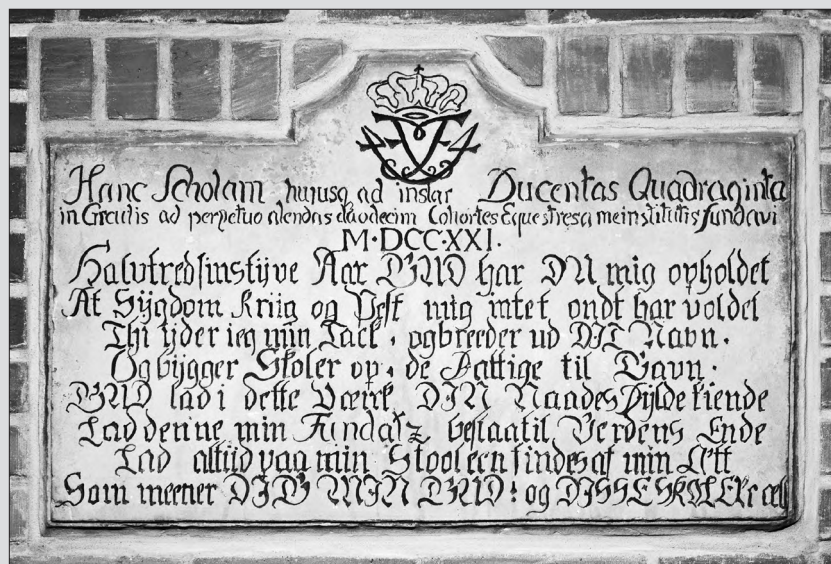 Hanc Scholam hujusq ad instar Ducentas Quadraginta
in Circulis ad perpetuo alendas duodecim Cohortes Equestres a me institutis fundavi
M·DCC·XXI.
Halvtredsinstÿve Aar GUD har DU mig opholdet
At Sÿgdom Kriig og Pest mig intet ondt har voldet
Thi ÿder ieg min Tack, og breeder ud DIT Navn.
Og bÿgger Skoler op, de Fattige til Gavn.
GUD lad i dette Værck DIN Naades Fÿlde kiende
Lad denne min Fundatz bestaa til Verdens Ende
Lad altiid paa min Stool een findes af min Ætt
Som meener DIG MIN GUD! og DISSE SKOLER ræt